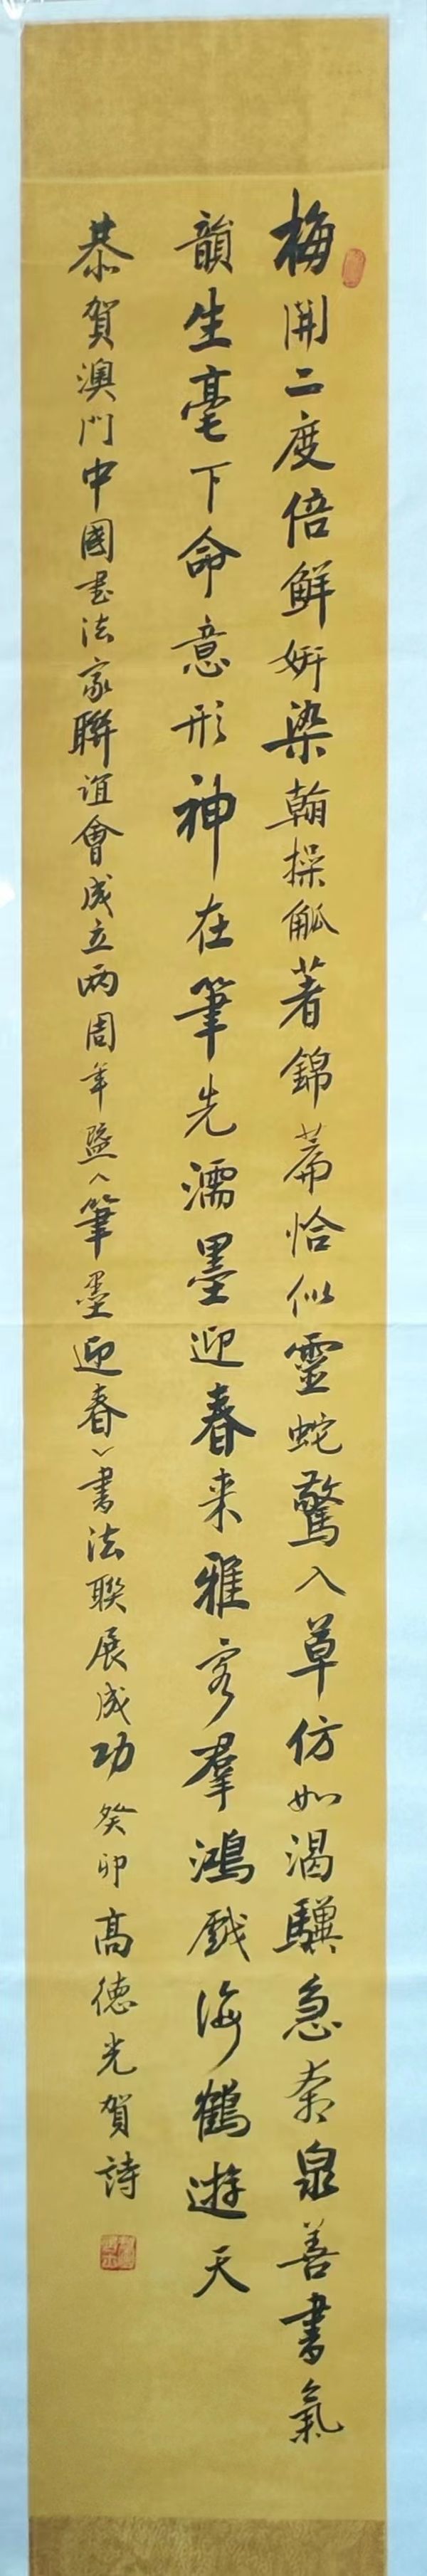 梅開二度倍鮮妍染翰操觚著錦篇恰似靈蛇驚入草仿如渴驥急奔泉善書氣
韻生毫下命意形神在筆先濡墨迎春來雅客羣鴻戲海鶴遊天
恭賀澳門中國書法家聯誼會成立两周年暨〈筆墨迎春〉書法聯展成功 癸卯高德光賀詩